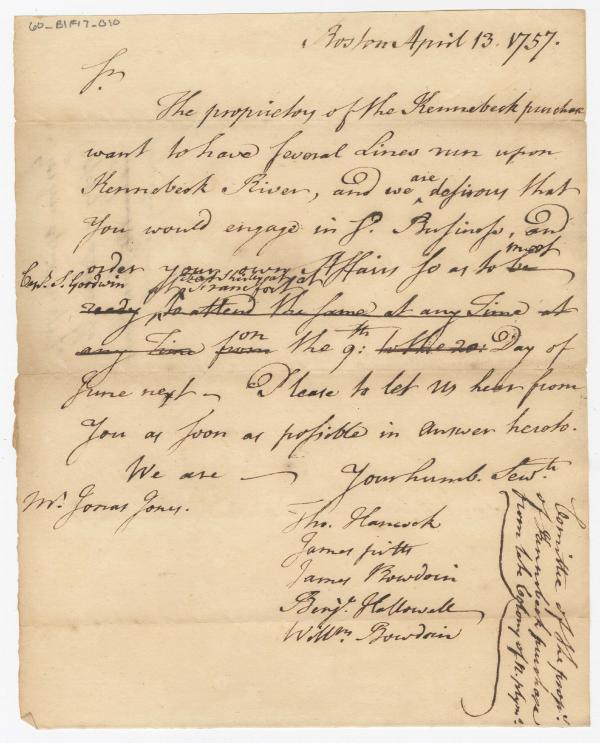 60_B1F17_010
Boston April 13. 1757.
Sr.
The proprietors of the Kennebeck purchase
want to have several Lines run upon
Kennebeck River, and we are desirous that
You would engage in sd. Business, and
order your own Affairs so as to be meet
Capt. S. Goodwin at Frankfort
ready to attend the same at any Time at
any Time from on the 9:th to the 20: Day of
June next — Please to let us hear from
You as soon as possible in answer hereto.
We are — Your humb. Servts.
Mr. Jonas Jones.
Tho. Hancock
James Pitts
James Bowdoin
Benja. Hallowell
Willm. Bowdoin
Comittee of the props.
of Kennebeck purchase
from late Colony of N. plymo.